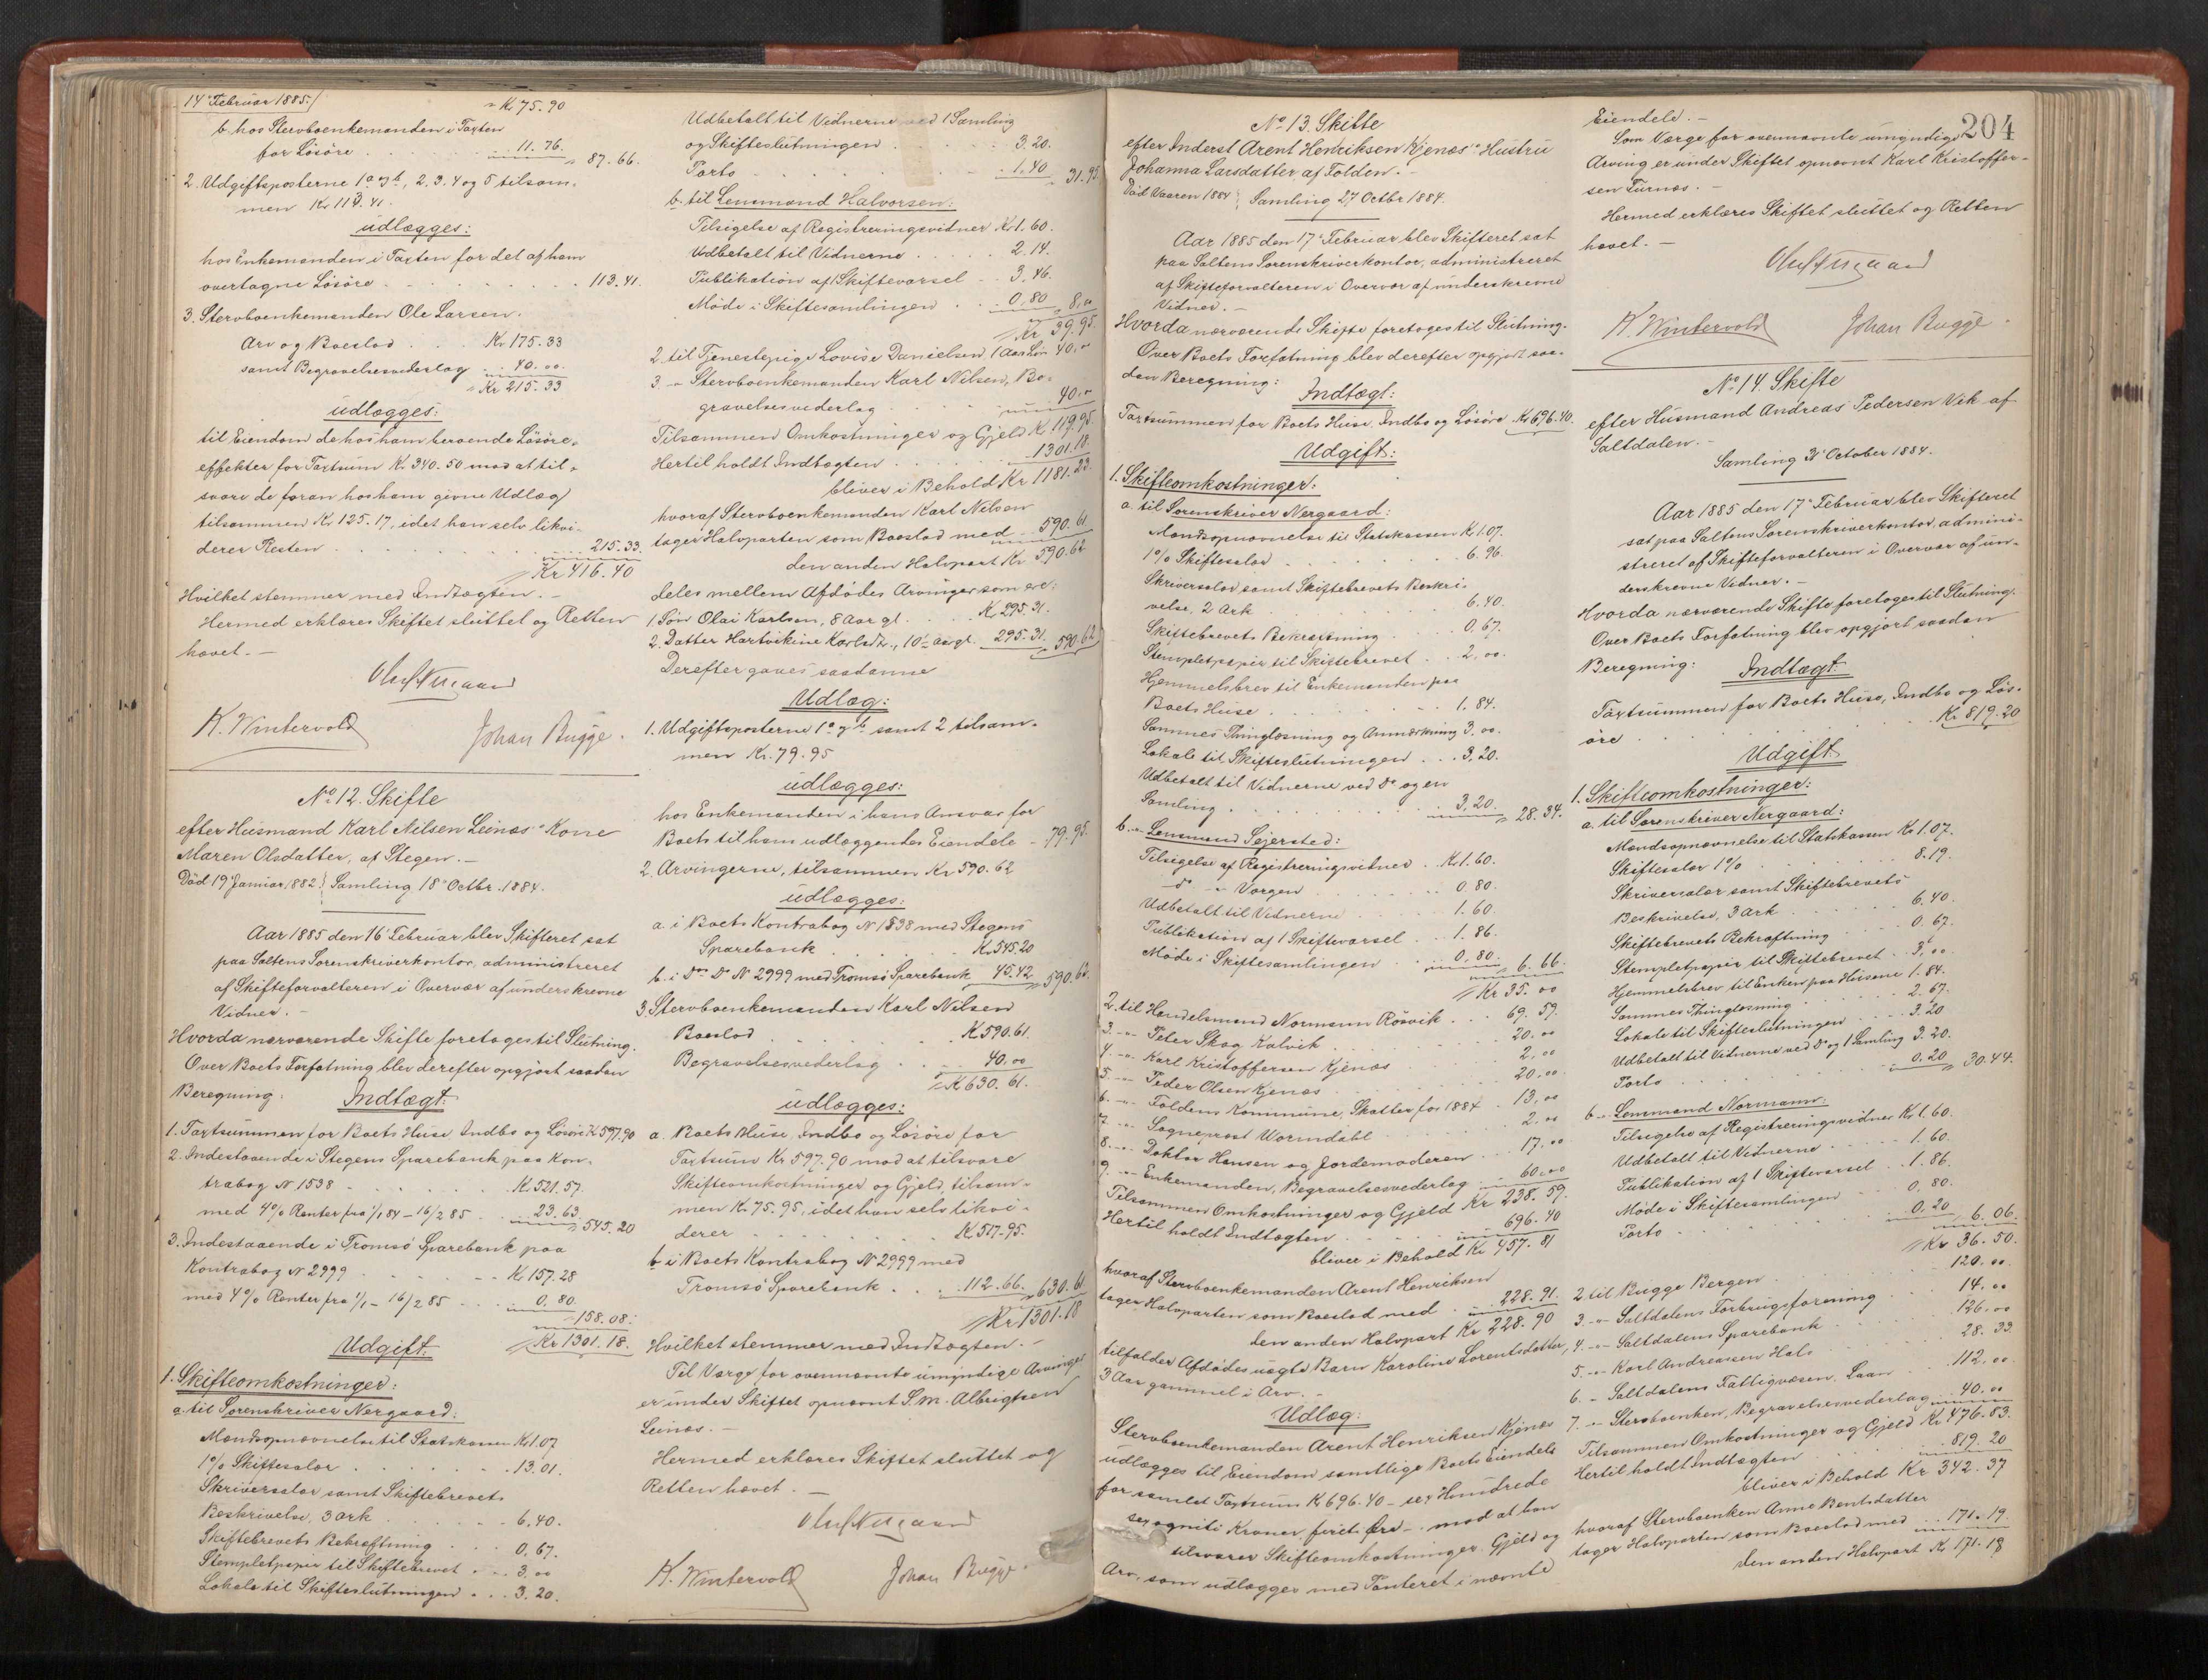 14 Februar 1885./
" Kr 75.90
b. hos Stervboenkemanden i Taxten
for Løsøre . . . 11.76.
" 87.66.
2. Udgiftsposterne 1 a og b, 2. 3. 4 og 5 tilsam-
men Kr 113.41.
udlægges:
hos Enkemanden i Taxten for det af ham
overtagne Løsøre . . . 113.41.
3. Stervboenkemanden Ole Larsen.
Arv og Boeslod . . . Kr 175.33
samt Begravelsesvederlag . . 40.00.
Kr 215.33
udlægges:
til Eiendom de hos ham beroende Løsøre-
effekter for Taxtsum Kr 340.50 mod at til-
svare de foran hos ham givne Udlæg
tilsammen Kr 125.17, idet han selv likvi-
derer Resten . . . 215.33.
Kr 416.40
Hvilket stemmer med Indtægten. -
Hermed erklæres Skiftet sluttet og Retten
hævet. -
Oluf Nergaard
K. Wintervold Johan Bugge.
No 12. Skifte
efter Husmand Karl Nilsen Leines' Kone
Maren Olsdatter, af Stegen. -
Død 19 Januar 1882. Samling 18 Octbr. 1884.
Aar 1885 den 16 Februar blev Skifteret sat
paa Saltens Sorenskriverkontor, administreret
af Skifteforvalteren i Overvær af underskrevne
Vidner. -
Hvorda nærværende Skifte foretoges til Slutning.
Over Boets Forfatning blev derefter opgjort saadan
Beregning: Indtægt:
1. Taxtsummen for Boets Huse Indbo og Løsøre Kr 597.90
2. Indestaaende i Stegens Sparebank paa Kon-
trabog No 1538 . . . Kr 521.57.
med 4% Renter fra 1/1 84 - 16/2 85 . . 23.63
" 545.20
3. Indestaaende i Tromsø Sparebank paa
Kontrabog No 2999 . . . Kr 157.28
med 4% Renter fra 1/1 - 16/2 85 . . . 0.80.
" 158.08.
Kr 1301.18.
Udgift.
1. Skifteomkostninger:
a. til Sorenskriver Nergaard:
Mandsopnævnelse til Statskassen Kr 1.07
1% Skiftesalær . . . 13.01.
Skriversalær samt Skiftebrevets
Beskrivelse, 3 Ark . . . 6.40.
Skiftebrevets Bekræftning . . . 0.67.
Stempletpapir til Skiftebrevet . . . 3.00
Lokale til Skifteslutningen . . . 3.20.
Udbetalt til Vidnerne ved 1 Samling
og Skifteslutningen . . . 3.20.
Porto . . . 1.40
" 31.95
b. til Lensmand Halvorsen:
Tilsigelse af Registreringsvidner Kr 1.60.
Udbetalt til Vidnerne . . . 2.14.
Publikation af 1 Skiftevarsel . . 3.46.
Møde i Skiftesamlingen . . . 0.80 " 8.00
Kr 39.95.
2. til Tjenestepige Lovise Danielsen, 1 Aars Løn 40.00
3. " Stervboenkemanden Karl Nilsen, Be-
gravelsesvederlag . . . 40.00
Tilsammen Omkostninger og Gjeld Kr 119.95.
Hertil holdt Indtægten . . . 1301.18.
bliver i Behold Kr 1181.23.
hvoraf Stervboenkemanden Karl Nilsen
tager Halvparten som Boeslod med . . 590.61
den anden Halvpart Kr 590.62
deles mellem Afdødes Arvinger som er:
1. Søn Olai Karlsen, 8 Aar gl. . . Kr 295.31.
2. Datter Hartvikine Karlsdtr., 10½ Aar gl. . 295.31. " 590.62
Derefter gaves saadanne
Udlæg:
1. Udgiftsposterne 1 a og b samt 2 tilsam-
men Kr. 79.95
udlægges:
hos Enkemanden i hans Ansvar for
Boets til ham udlæggendes Eiendele - 79.95.
2. Arvingerne, tilsammen Kr 590.62
udlægges:
a. i Boets Kontrabog No 1538 med Stegens
Sparebank . . . Kr 545.20
b. i Do Do No 2999 med Tromsø Sparebank 45.42 " 590.62.
3. Stervboenkemanden Karl Nilsen
Boeslod . . . Kr 590.61.
Begravelsesvederlag . . . 40.00
Kr 630.61.
udlægges:
a. Boets Huse, Indbo og Løsøre for
Taxtsum Kr 597.90 mod at tilsvare
Skifteomkostninger og Gjeld, tilsam-
men Kr 75.95, idet han selv likvi-
derer . . . Kr 517.95.
b. i Boets Kontrabog No 2999 med
Tromsø Sparebank . . . 112.66. " 630.61
Kr 1301.18
Hvilket stemmer med Indtægten. -
Til Værge for ovennævnte umyndige Arvinger
er under Skiftet opnævnt S. M. Albrigtsen
Leines. -
Hermed erklæres Skiftet sluttet og
Retten hævet. -
Oluf Nergaard
K. Wintervold Johan Bugge.
204
No 13. Skifte
efter Inderst Arent Henriksen Kjenæs' Hustru
Johanna Larsdatter af Folden. -
Død Vaaren 1884. Samling 27 Octbr 1884.
Aar 1885 den 17 Februar blev Skifteret sat
paa Saltens Sorenskriverkontor, administreret
af Skifteforvalteren i Overvær af underskrevne
Vidner. -
Hvorda nærværende Skifte foretoges til Slutning.
Over Boets Forfatning blev derefter opgjort saa-
dan Beregning: Indtægt:
Taxtsummen for Boets Huse, Indbo og Løsøre Kr 696.40.
Udgift:
1. Skifteomkostninger:
a. til Sorenskriver Nergaard:
Mandsopnævnelse til Statskassen Kr 1.07.
1% Skiftesalær . . . 6.96.
Skriversalær samt Skiftebrevets Beskri-
velse, 2 Ark . . . 6.40.
Skiftebrevets Bekræftning . . . 0.67.
Stempletpapir til Skiftebrevet . . 2.00.
Hjemmelsbrev til Enkemanden paa
Boets Huse . . . 1.84.
Sammes Thinglæsning og Anmærkning 3.00.
Lokale til Skifteslutningen . . . 3.20.
Udbetalt til Vidnerne ved Do og en
Samling . . . 3.20. " 28.34.
b. " Lensmand Sejersted:
Tilsigelse af Registreringsvidner . Kr 1.60.
Do " Værgen . . . 0.80.
Udbetalt til Vidnerne . . . 1.60.
Publikation af 1 Skiftevarsel . . 1.86.
Møde i Skiftesamlingen . . . 0.80. " 6.66.
Kr 35.00
2. til Handelsmand Normann Røsvik . . . 69.59.
3. " Peter Skog Kalvik . . . 20.00
4. " Karl Kristoffersen Kjenæs . . . 2.00
5. " Peder Olsen Kjenæs . . . 20.00
6. " Foldens Kommune, Skatter for 1884 . 13.00
7. " Sogneprest Wormdahl . . . 2.00
8. " Doktor Hansen og Jordemoderen . . . 17.00
9. " Enkemanden, Begravelsesvederlag . . 60.00
Tilsammen Omkostninger og Gjeld Kr 238.59.
Hertil holdt Indtægten . . . 696.40
bliver i Behold Kr 457.81
hvoraf Stervboenkemanden Arent Henriksen
tager Halvparten som Boeslod med . . 228.91.
den anden Halvpart Kr 228.90
tilfalder Afdødes uægte Barn Karoline Lorentsdatter,
3 Aar gammel i Arv. -
Udlæg:
Stervboenkemanden Arent Henriksen Kjenæs
udlægges til Eiendom samtlige Boets Eiendele
for samlet Taxtsum Kr 696.40 - sex Hundrede
sex og niti Kroner, firti Øre - mod at han
tilsvarer Skifteomkostninger, Gjeld og
Arv, som udlægges med Panteret i nævnte
Eiendele. -
Som Værge for ovennævnte umyndige
Arving er under Skiftet opnævnt Karl Kristoffer-
sen Furnes. -
Hermed erklæres Skiftet sluttet og Retten
hævet. -
Oluf Nergaard
K. Wintervold Johan Bugge.
No 14. Skifte
efter Husmand Andreas Pedersen Vik af
Saltdalen. -
Samling 31 October 1884.
Aar 1885 den 17 Februar blev Skifteret
sat paa Saltens Sorenskriverkontor, admini-
streret af Skifteforvalteren i Overvær af un-
derskrevne Vidner. -
Hvorda nærværende Skifte foretoges til Slutning.
Over Boets Forfatning blev opgjort saadan
Beregning: Indtægt:
Taxtsummen for Boets Huse, Indbo og Løs-
øre . . . Kr 819.20
Udgift
1. Skifteomkostninger:
a. til Sorenskriver Nergaard:
Mandsopnævnelse til Statskassen Kr 1.07.
Skiftesalær 1% . . . 8.19.
Skriversalær samt Skiftebrevets
Beskrivelse, 3 Ark . . . 6.40.
Skiftebrevets Bekræftning . . . 0.67.
Stempletpapir til Skiftebrevet . . 3.00
Hjemmelsbrev til Enken paa Husene 1.84.
Sammes Thinglæsning . . . 2.67.
Lokale til Skifteslutningen . . . 3.20
Udbetalt til Vidnerne ved Do og 1 Samling 3.20.
Porto . . . 0.20 " 30.44.
b. " Lensmand Normann:
Tilsigelse af Registreringsvidner Kr 1.60.
Udbetalt til Vidnerne . . . 1.60.
Publikation af 1 Skiftevarsel . . 1.86.
Møde i Skiftesamlingen . . . 0.80.
Porto . . . 0.20 " 6.06.
Kr 36.50.
2. til Bugge Bergen . . . 120.00.
3. " Saltdalens Forbrugsforening . . . 14.00
4. " Saltdalens Sparebank . . . 126.00
5. " Karl Andreassen Hals . . . 28.33.
6. " Saltdalens Fattigvæsen, Laan . . . 112.00
7. " Stervboenken, Begravelsesvederlag . . 40.00
Tilsammen Omkostninger og Gjeld Kr 476.83.
Hertil holdt Indtægten . . . 819.20
bliver i Behold Kr 342.37
hvoraf Stervboenken Anne Bentsdatter
tager Halvparten som Boeslod med . . 171.19.
den anden Halvpart Kr 171.18